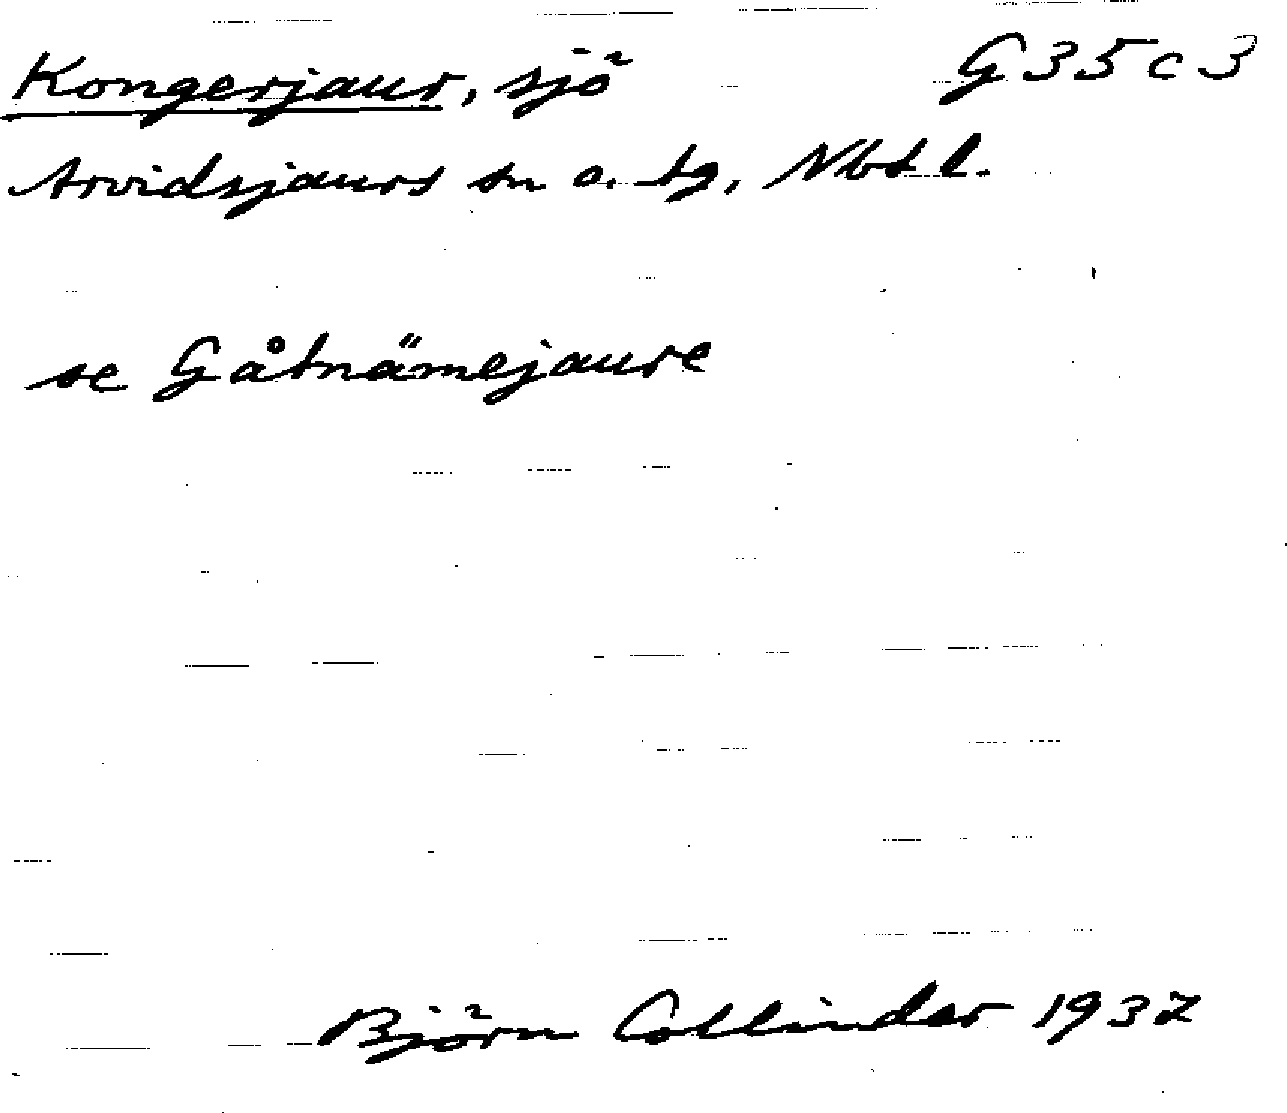 Kongerjaur, sjö G35c3
Arvidsjaurs sn o. tg, Nbt l.
se Gåtnämejaure
Björn Collinder 1937